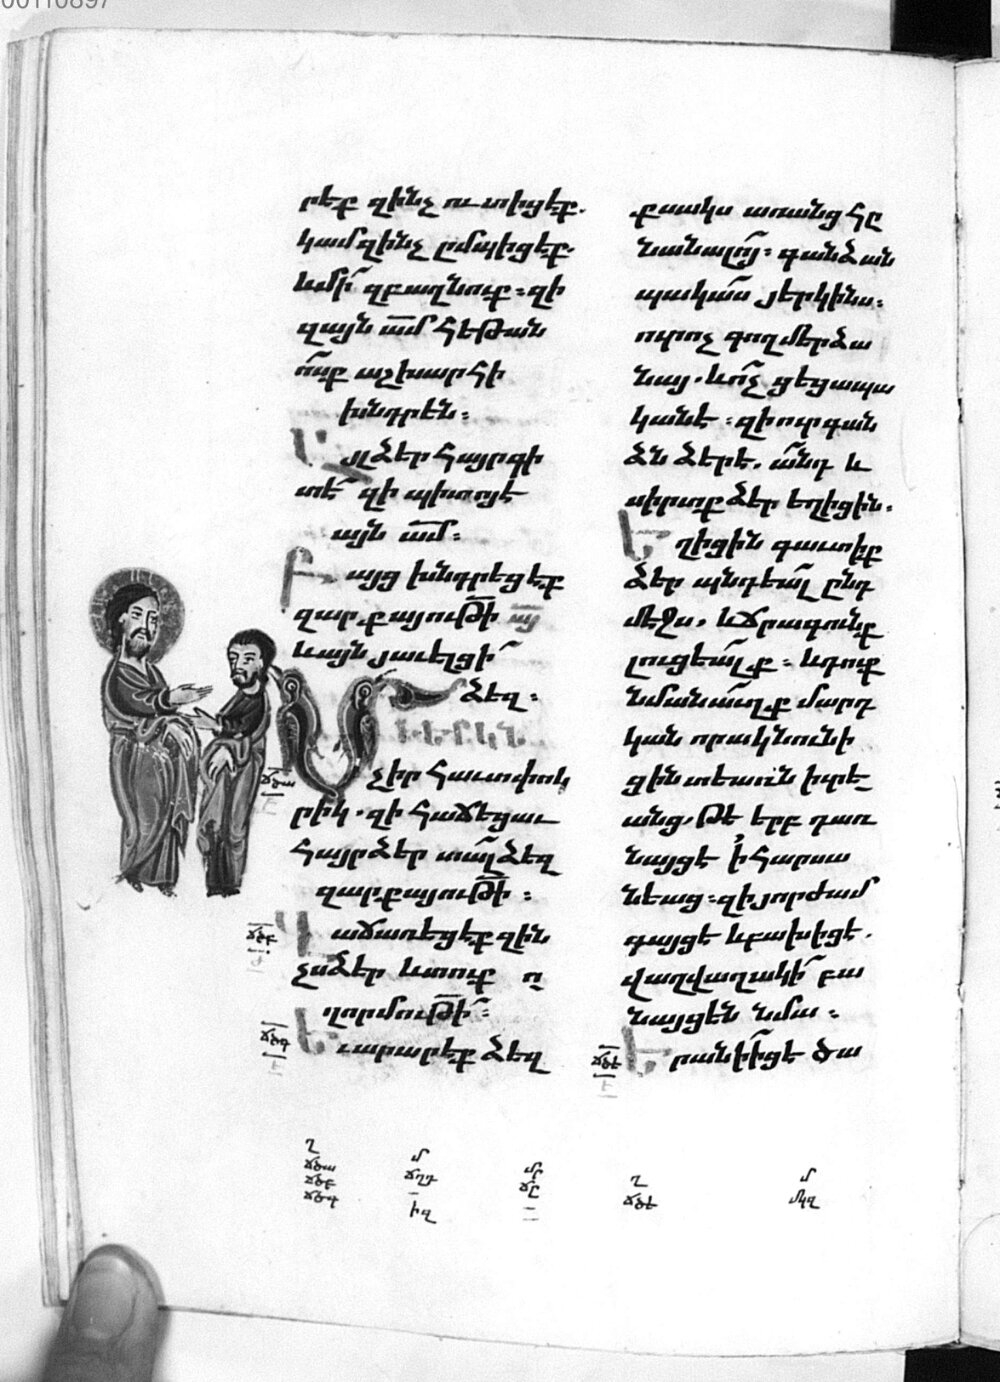 րէք զինչ ուտիցէք.
կամ զինչ ըմպիցէք.
և մի՛ զբաղնուք։ զի
զայն ամ հեթան
ոսք աշխարհի
խնդրեն։
Այլ ձեր հայր գի
տէ՛ զի պիտոյ է
այն ամ։
Բայց խնդրեցէք
զարքայութի այ
և այն յաւելցի՛
ձեզ։
Մի երկն
չիր հաւտ փոք
րիկ. զի հաճեցաւ
հայր ձեր տալ ձեզ
զարքայութի։
Վաճառեցէք զին
չս ձեր և տուք ո
ղորմութի՛։
Եւ արարէք ձեզ
քսակս առանց հը
նանալոյ։ գանձ ան
պակաս յերկինս։
ուր ոչ գող մերձա
նայ. և ոչ ցեց ապա
կանէ։ զի ուր գան
ձն ձեր է. անդ և
սիրտք ձեր եղիցին։
Եղիցին գաւտիք
ձեր պնդեալ ընդ
մէջս. և ճրագունք
լուցեալք։ և դուք
նմանաղք մարդ
կան որ ակն ունի
ցին տեառն իւրե
անց, թե երբ դառ
նայցէ ի հարսա
նեաց։ զի յորժամ
գայցէ և բախիցէ.
վաղվաղակի՛ բա
նայցեն նմա։
Երանի՛ իցէ ծա
ճծա
ճծբ
ճծգ
ճծէ
ղ
ճծա
ճծբ
ճծգ
մ
ճղդ
իզ
մր
ճը
ղ
ճծէ
մ
մկզ
00110897